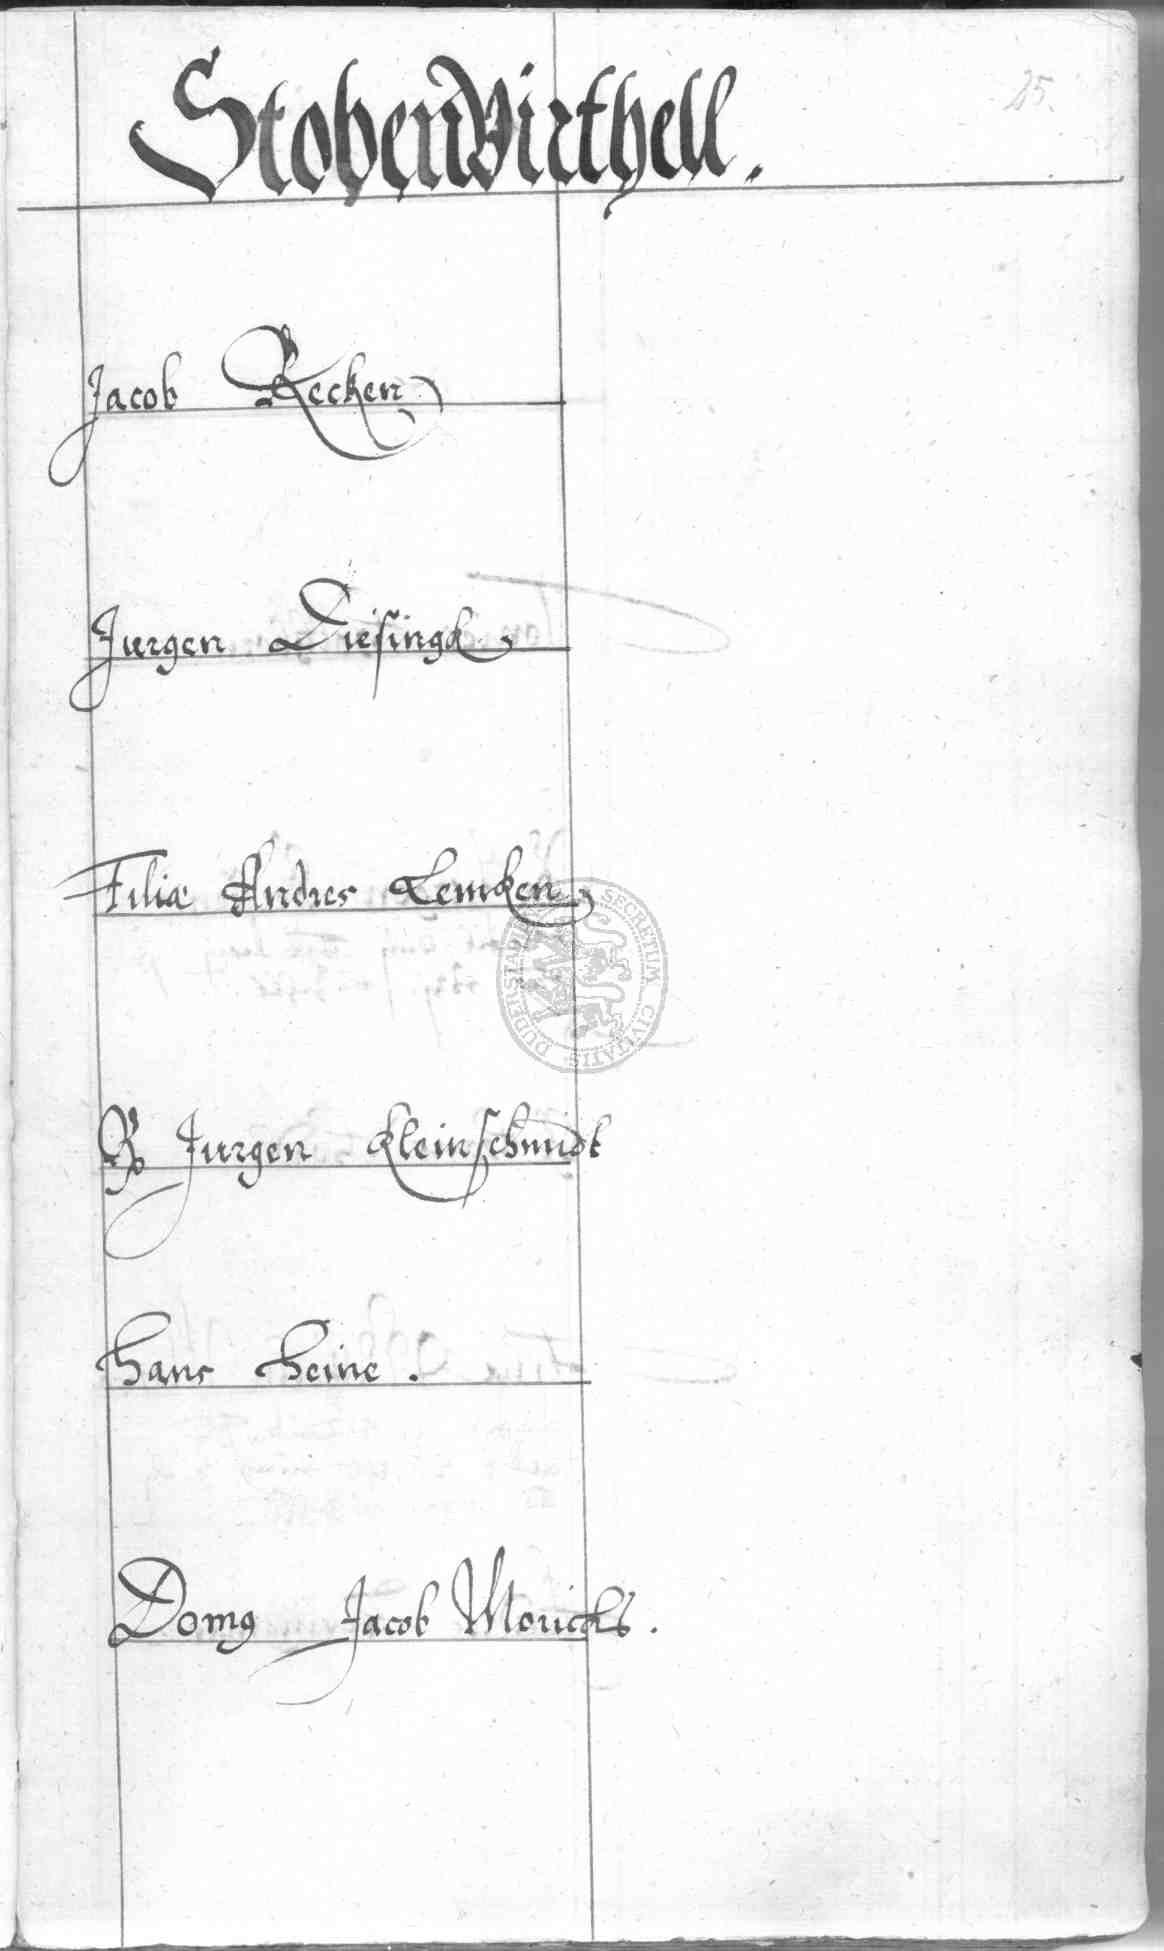 25.
StobenVirthell.
Jacob Recken
Jurgen Diesingk.
Filiæ Andres Lemken
Jurgen Kleinschmidt
Hans Heine.
Domg Jacob Morichs.
SECRETUM CIVITATIS DUDERSTADT